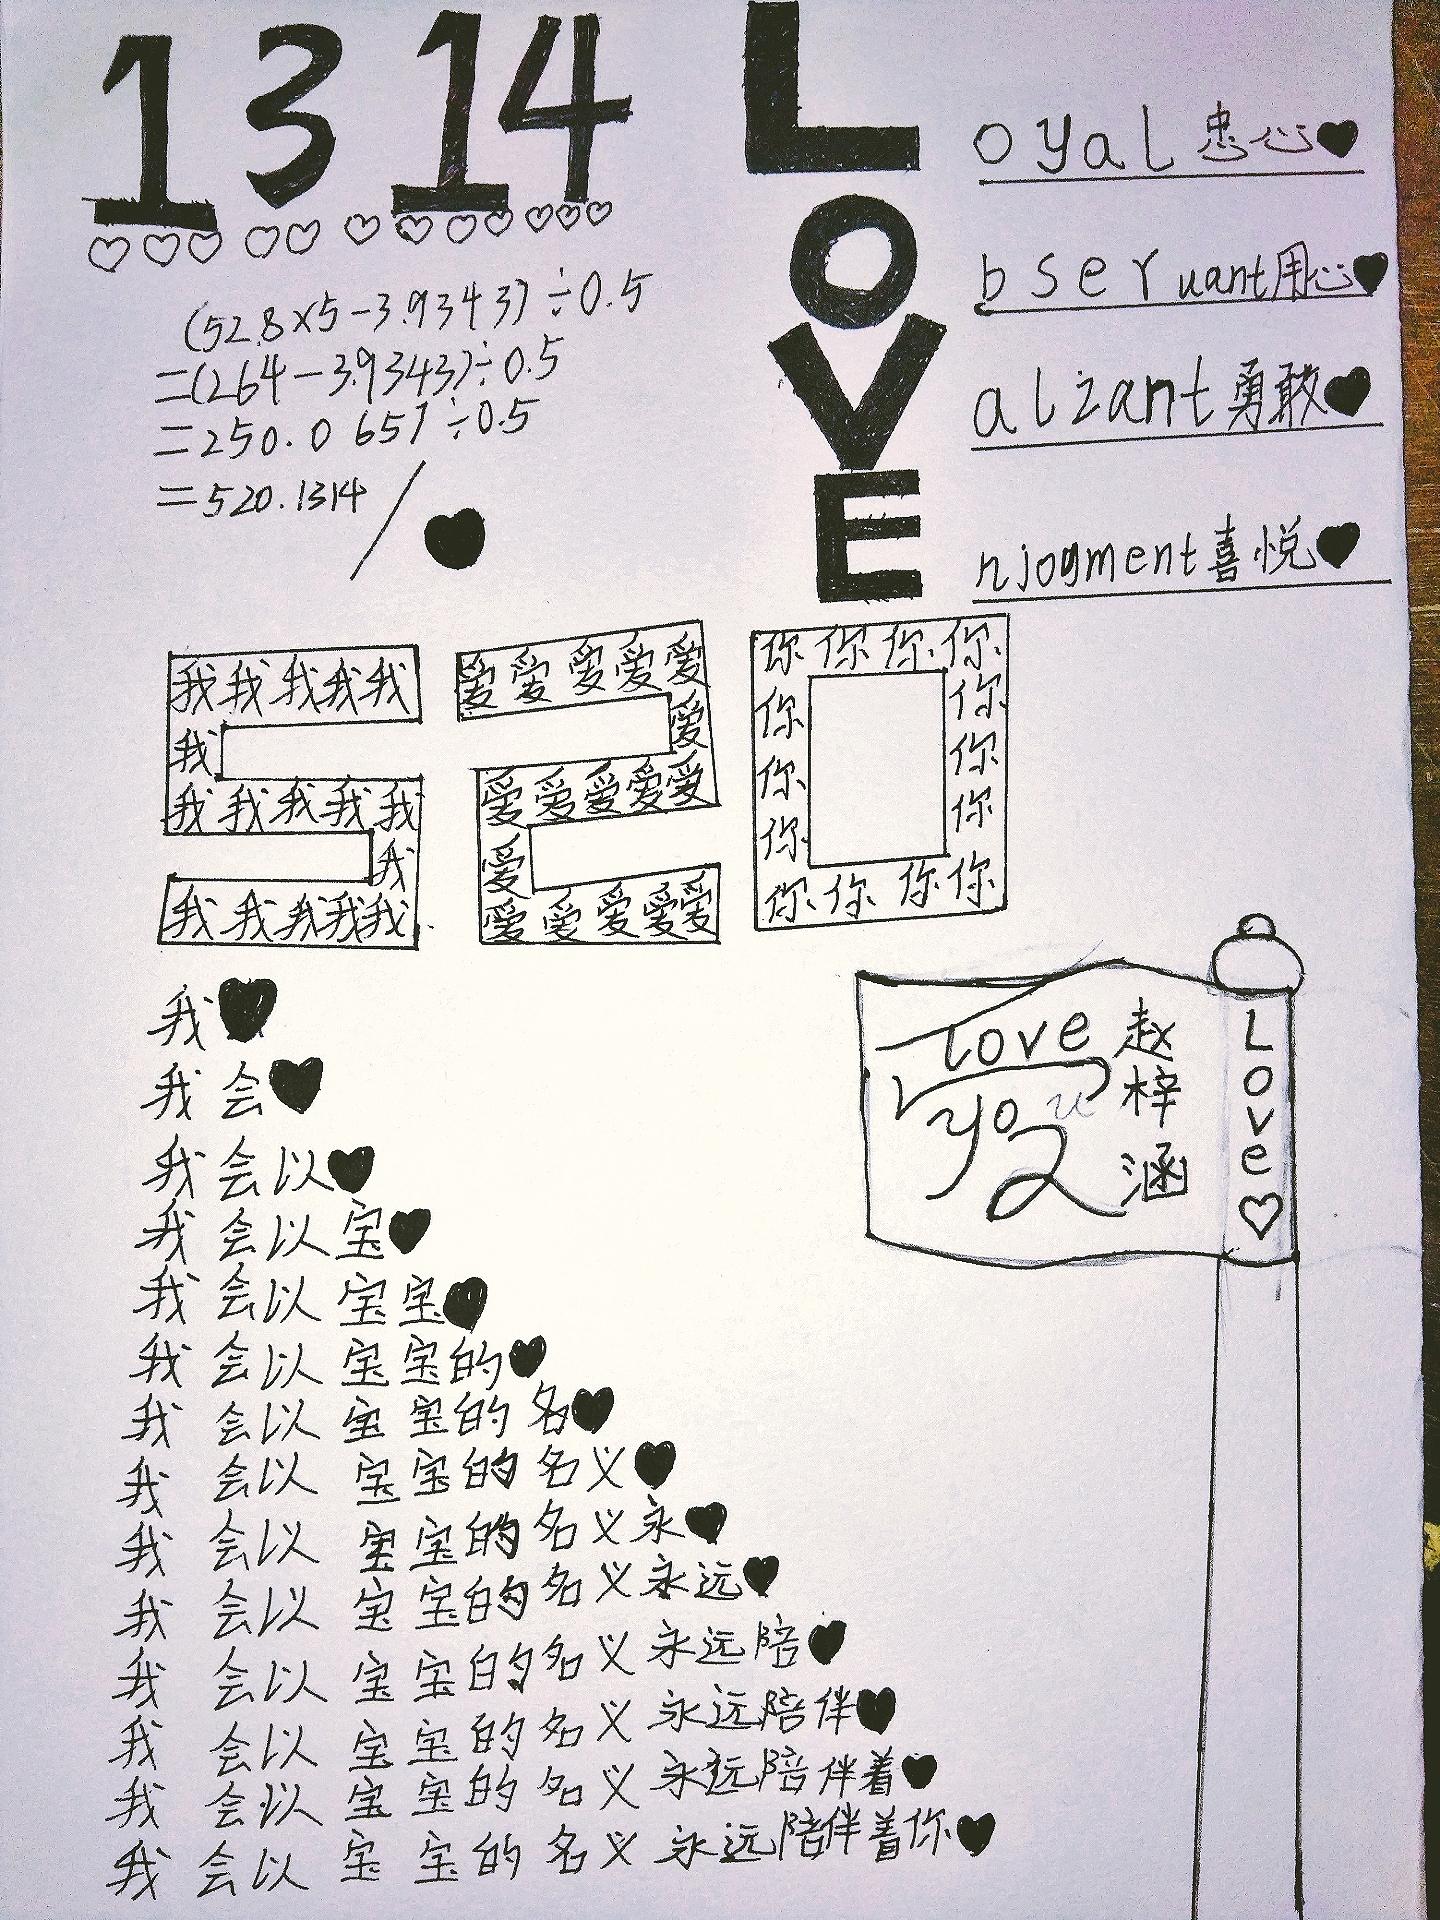 1314
(52.8×5-3.9343)÷0.5
=(264-3.9343)÷0.5
=250.0657÷0.5
=520.1314
Loyal 忠心
Obseruant用心
Valiant勇敢
Enjogment喜悦
我我我我我
我
我我我我我
我
我我我我我
爱爱爱爱爱
爱
爱爱爱爱爱
爱
爱爱爱爱爱
你你你你
你你
你你
你你
你你你你
我
我会
我会以
我会以宝
我会以宝宝
我会以宝宝的
我会以宝宝的名
我会以宝宝的名义
我会以宝宝的名义永
我会以宝宝的名义永远
我会以宝宝的名义永远陪
我会以宝宝的名义永远陪伴
我会以宝宝的名义永远陪伴着
我会以宝宝的名义永远陪伴着你
love
you
赵梓涵
Love